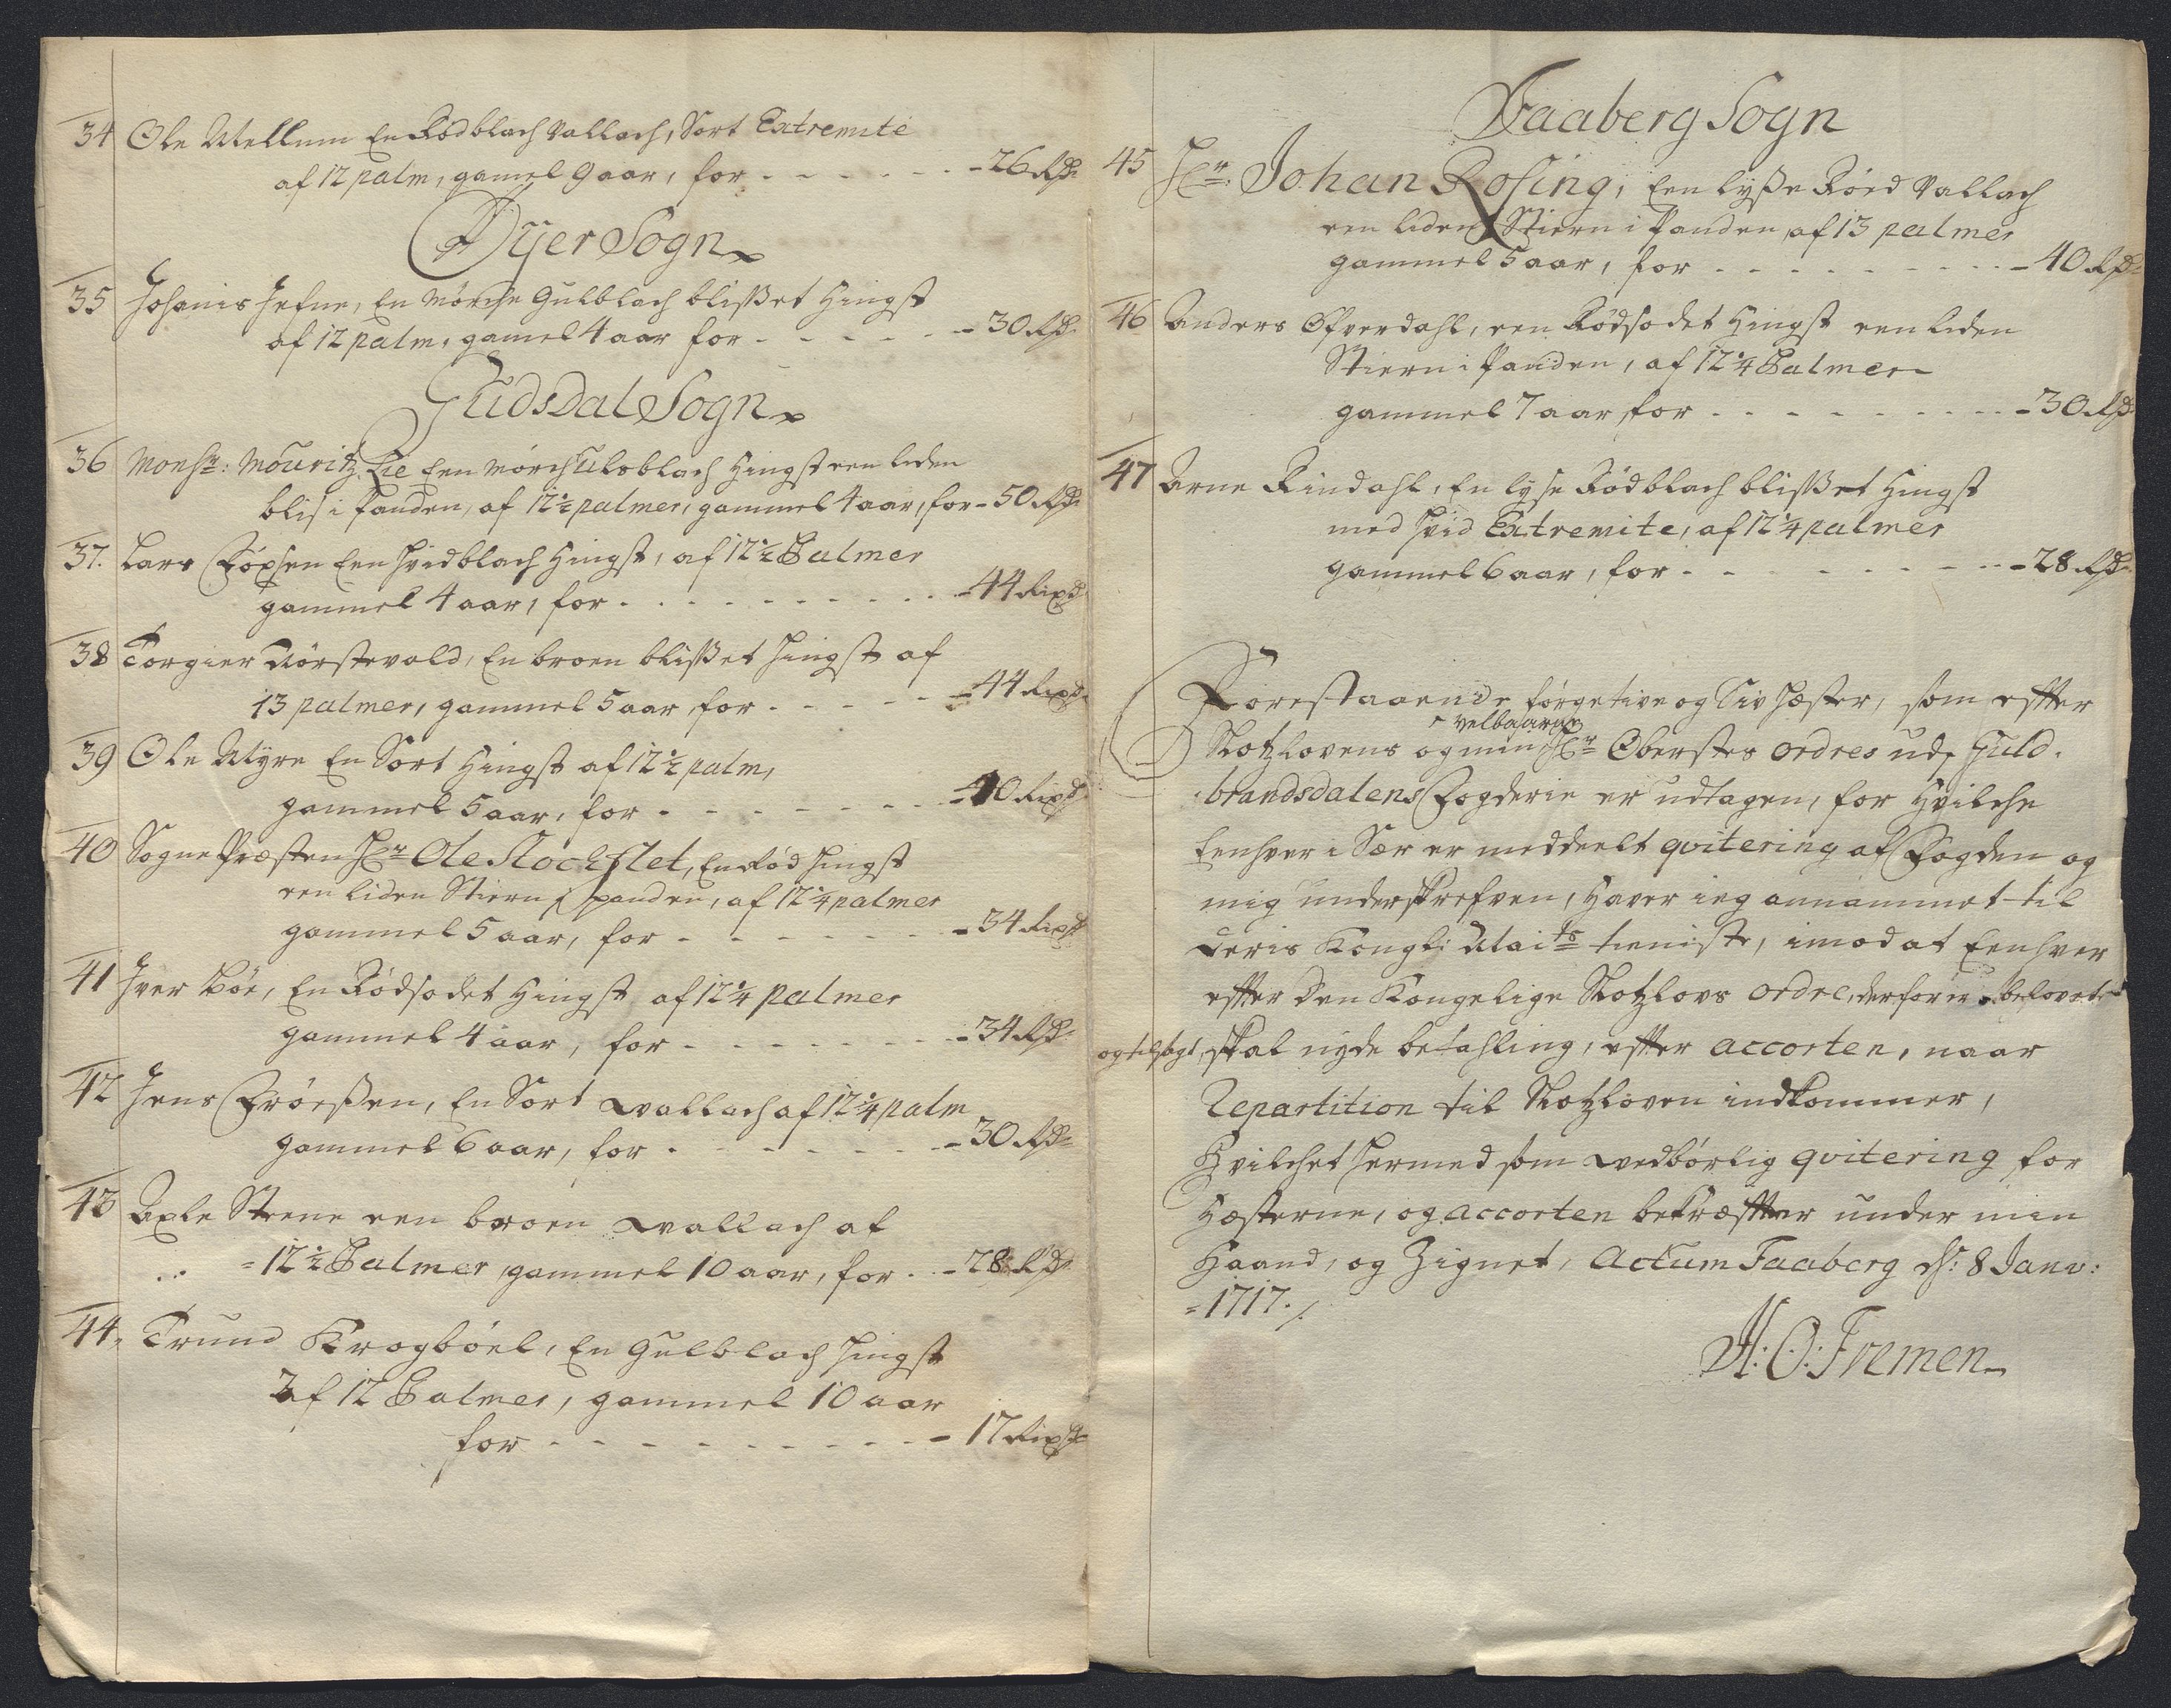 34 Ole Mellum En Rödblach Vallach, Sort Extremite
af 12 palm, gamel 9 aar, for - - - - - - 26 Rd:
Öyer Sogn
35 Johanis Jefne, En Mörche Gulblach blisset Hingst
af 12 palm, gamel 4 aar for - - - - - 30 Rd:
Gudsdal Sogn
36 Monsr: Mouritz Lie Een Mörch Ulsblach Hingst een liden
blis i Panden, af 12 1/2 palmer, gammel 4 aar, for - 50 Rd:
37. Lars Een Hvidblach Hingst, af 12 1/2 Palmer
gammel 4 aar, for - - - - - - - - - 44 Rixd:
38 Torgier Nörstevold, En broen blisset Hingst af
13 palmer, gammel 5 aar for - - - - - 44 Rixd:
39 Ole Myre En Sort Hingst af 12 1/2 palm,
gammel 5 aar, for - - - - - - - - 40 Rixd:
40 Sogne Præsten Hr: Ole Stochflet, En Rød Hingst
een liden Stiern i panden, af 12 1/4 palmer
gammel 5 aar, for - - - - - - - 34 Rixd:
41 Iver Böe, En Rödsodet Hingst af 12 1/4 palmer
gammel 4 aar, for - - - - - - - 34 Rd:
42 Jens Fröeßen, En Sort Wallach af 12 1/4 palm
gammel 6 aar, for - - - - - - - 30 Rd:
43 Axle Steene een broen Wallach af
12 1/2 Palmer, gammel 10 aar, for - - 28 Rd:
44. Trund Krogböel, En Gulblach Hingst
af 12 Palmer, gammel 10 aar
for - - - - - - - - - 17 Rixd:
Faaberg Sogn
45 Hr: Johan Rosing, Een lyße Röed Vallach
een liden Stiern i Panden, af 13 palmer
gammel 5 aar, for - - - - - - - - 40 Rd:
46 Anders Öfverdahl, een Rödsodet Hingst een liden
Stiern i Panden, af 12 1/4 Palmer
gammel 7 aar for - - - - - - - - 30 Rd:
47 Arne Rindahl, En lyse Rödblach blisset Hingst
med hvid Extremite, af 12 1/4 palmer
gammel 6 aar, for - - - - - - - - 28 Rd:
Forestaaende förgetive og Siv Hæster, som effter
Velbaarne
Slotzlovens og min Hr: Oberstes ordres udj Guld-
brandsdalens Fogderie er udtagen, for Hvilche
Eenhver i Sær er meddeelt qvitering af Fogden og
mig underskrefven, Haver ieg annammet til
Deris Kongl: Maits tieniste, imod at Eenhver
effter den Kongelige Slotzlovs ordre, derfor er belovet
og tilsagt, skal nyde betahling, effter accorten, naar
Repartition til Slotzloven indkommer,
Hvilchet hermed som Vedbörlig qvitering for
Hæsterne, og accorten bekræffter under min
Haand, og Zignet, Actum Faaberg d: 8 Janv:
1717./.
H: O: Fremen